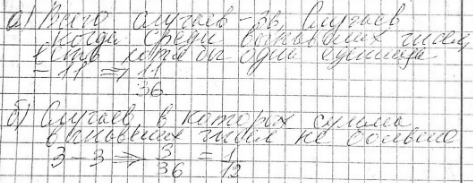 а) Всего случаев - 36, Случаев
когда среди выпавших чисел
есть хотя бы одна единица
= 11 ⇒ 11/36
б) Случаев, в которых сумма
выпавших чисел не больше
3 - 3 ⇒ 3/36 = 1/12